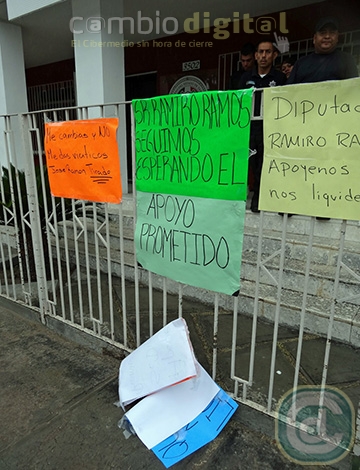 cambiodigital
El Cibermedio sin hora de cierre
5502
Me cambias y NO
Me das viaticos
José Ramon Tirado
RAMIRO RAMOS
SEGUIMOS
ESPERANDO EL
APOYO
PROMETIDO
Diputa
RAMIRO RA
Apoyenos
nos liquide